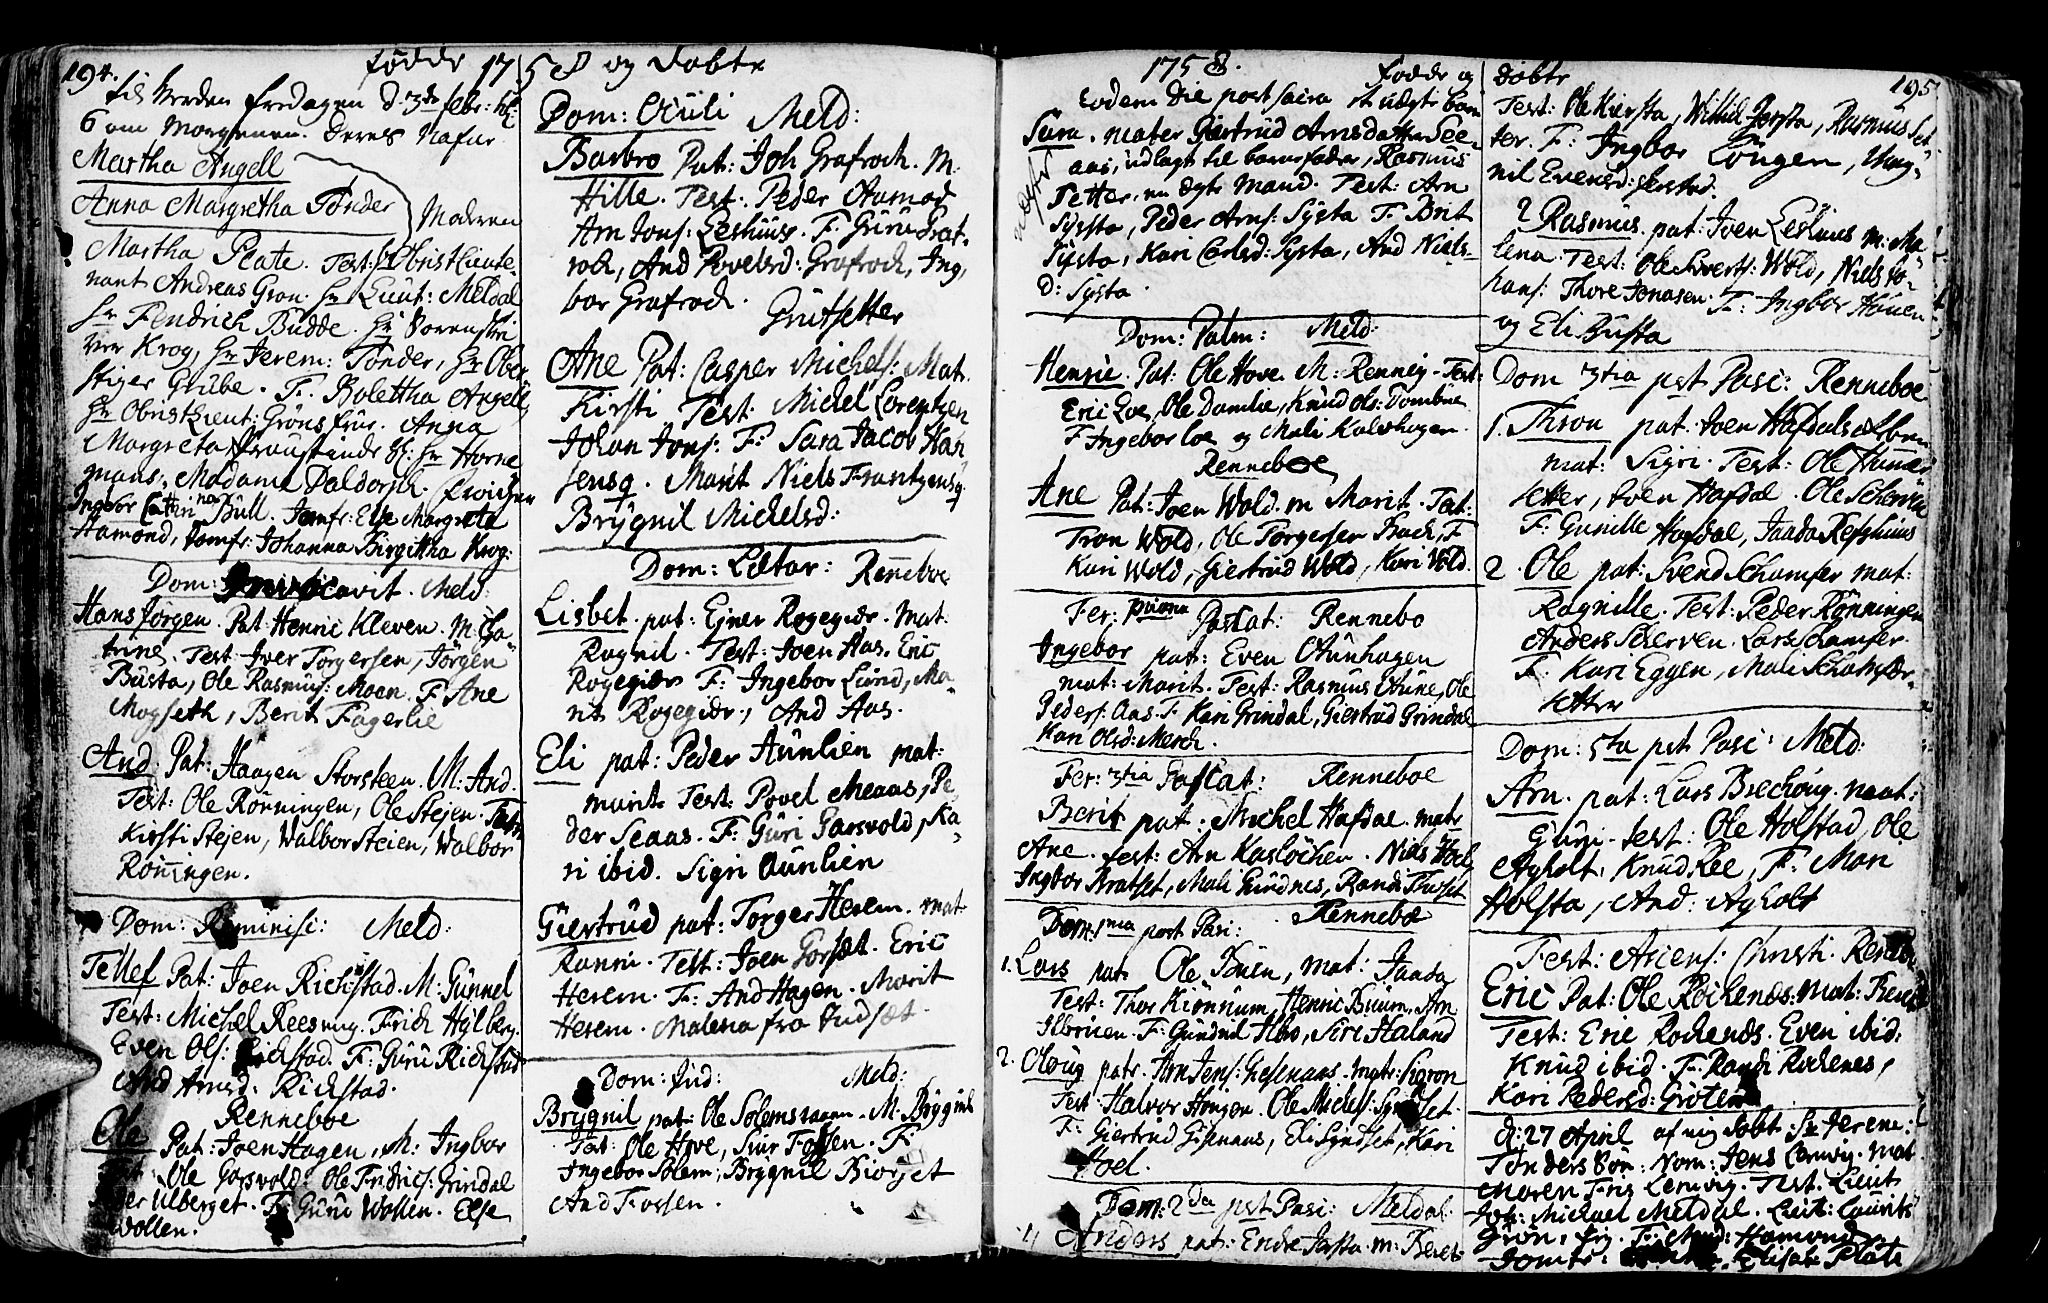 194.
fødde 1758 og døbte
til Verden fredagen d: 3de febr: kl:
6 om Morgenen. deres Nafne
Martha Angell
Anna Margretha Tønder
Madm
Martha Plate. Test: Hr Obristlieute-
nant Andreas Gron. Hr Lieut: Meldal
Hr Fendrich Budde. Hr Sorenskri
ver Krog, Hr Jerem: Tonder, Hr Ober
stiger Grube. F. Bolettha Angell,
Hr ObristLieut: Grøns frue. Anna
Margreta Hr Horne
mans, Madame Daldorph.
Ingbor Cathrina Bull. Jomfr: Else Margreta
Hamond, Jomfr: Johanna Birgittha Krog:
Dom: Invocavit. Meld:
Hans Jørgen. Pat: Henric Kleven. M: Cha-
trine. Test: Iver Torgersen, Jørgen
Busta, Ole Rasmus: Moen. F. Ane
Mogseth, Berit Fagerlie
And: Pat: Haagen Storsteen. M: And.
Test: Ole Rønningen, Ole Stejen.
Kirsti Stejen, Walbor Steien, Walbor
Rønningen.
Dom: Reminisc: Meld:
Tellef Pat: Joen Rickstad. M: Gunnel
Test: Michel Rees ung. Frich Hylberg.
Even Ols: Rickstad. F: Guru Rickstad
And Arnsd: Rickstad.
Renneboe
Ole Pat: Joen Hagen, M: Ingbor
Ole Gorsvold: Ole Fridrics: Grindal
Ulberget. F: Guru Wollen. Else
Wollen.
Dom: Oculi Meld:
Barbro Pat: Joh Grafroch. M.
Hille. Test: Peder Aamod
Arn Jons: Leshuus. F. Guru Graf-
roch, And Povelsd: Grafroch, Ing-
bor Grafroch.
Grutsetter
Ane Pat: Casper Michels: Mat.
Kirsti Test: Michel Lorentzen
Johan Jons: F: Sara Jacob Han
sensq. Marit Niels Frantzensq.
Brygnil Michelsd:
Dom: Lætar: Renneboe
Lisbet. pat: Ejner Rogegier. Mat:
Rognil. Test: Joen Aas. Eric
Rogegier F: Ingebor Lund, Ma-
rit Rogegier, And Aas.
Eli pat: Peder Aunlien mat:
marit Test: Povel Meaas, Pe-
der Seaas. F: Guri Garsvold, Ka-
ri ibid. Sigri Aunlien
Giertrud pat: Torger Herem. mat
Ranni. Test: Joen Gorsæt. Eric
Herem. F: And Hagen. Marit
Herem. Malena fra Indsæt.
Dom: Jud: Meld:
Brygnil pat: Ole Solemsvaagn. M: Brygnil
Tat: Ole Hove, Siur Fossen. F:
Ingebor Solem, Brygnil Biorset
And Fossen.
1758. Fødde og
Eodem Die post sacra et uægte barn
Sara. Mater Giertrud Arnsdatter See-
aas, udlagt til barnefader, Rasmus
uægte
Setter, en ægte mand. Test: Arn
Syssta, Peder Arns: Systa F: Brit
Systa, Kari Carlsd: Systa, And Niels-
D: Systa.
Dom: Palm: Meld:
Henric. Pat: Ole Hove. M: Renneig. Test:
Eric Loe, Ole Damlie, Knud Ols: Dombue
F Ingebor Loe og Mali Kalvhagen.
Renneboe
Ane Pat: Joen Wold. M Marit. Tat:
Tron Wold, Ole Torgersen Brach, F
Kari Wold, Giertrud Wold, Kari Vold.
Fer: prima Pascat: Rennebo
Ingebor pat: Even Aunhagen
mat: Marit. Test: Rasmus Aune, Ole
Peders: Aas. F: Kari Grindal, Giertrud Grindal
Kari Olsd: Merch.
Fer: 3tia Pascat: Renneboe
Berit pat: Michel Hafdal. matr
Ane. test: Arn Kasløchen. Niels Hoel
Ingbor Kratset, Mali Gundnes, Randi Thoset
Dom: 1ma post Pasc: Renneboe
1. Lars pat: Ole Buen, mat: Jaada
Test: Thor Kiønsium, Henric Buum, Arn
Ilbruen. F: Gundnil Hbro, Siri Haland
2. Oloug patr: Arn Jens: Gisenaas. matr: Sigron
Test: Halvor Hougen. Ole Michels:
F: Giertrud Gisenaas, Eli Syndset, Kari
Hoel.
Dom: 2da pst Pasc: Meldal:
1/ Anders pat: Endre Jersta. m: Beret
195
døbte
Test: Ole Kiersta, Wilhel Jersta, Rasmus Set-
ter. F: Ingbor Lougen, Mag-
nil Evensd: Jerstad.
2 Rasmus. pat: Joen Leshuus m: Ma-
lena. Test: Ole Siverts: Wold, Niels Jo-
hans: Thore Jonasen. F: Ingbor Houen
og Eli Busta
Dom 3tia pst Pasc: Renneboe
1. Thron pat: Joen Hafdals Ælbrue
mat: Sigri. Test: Ole
setter, Even Hafdal. Ole Scherven
F: Gunille Hafdal, Jaada Refshuus
2. Ole pat: Svend Schamfer mat:
Rognille. Test: Peder Rønningen
Anders Scherven. Lars Schamfer.
F: Kari Eggen, Mali Schamfær-
setter
Dom: 5ta pst Pasc: Meld:
Arn. pat: Lars Brechoug. mat:
Guri. test: Ole Holstad, Ole
Agholt, Knud Ree, F: Mari
Holsta, And: Agholt
Fest: Ascens: Christi. Renneboe
Eric Pat: Ole Rochenes. Mat: Beret
Test: Eric Rochends. Even ibid:
Knud ibid. F: Randi Rochenes,
Kari Pedersd: Groten
d: 27 April af mig døbt: Hr Jerem:
Tønders Søn: Nom: Jens Lemvig. mat
Maren Fris Lemvig. Test: Lieut
Joh: Michael Meldal. Lieut: Laurits
Grøn. F: Mad: Hamond
Jomfr: Elisab: Plate